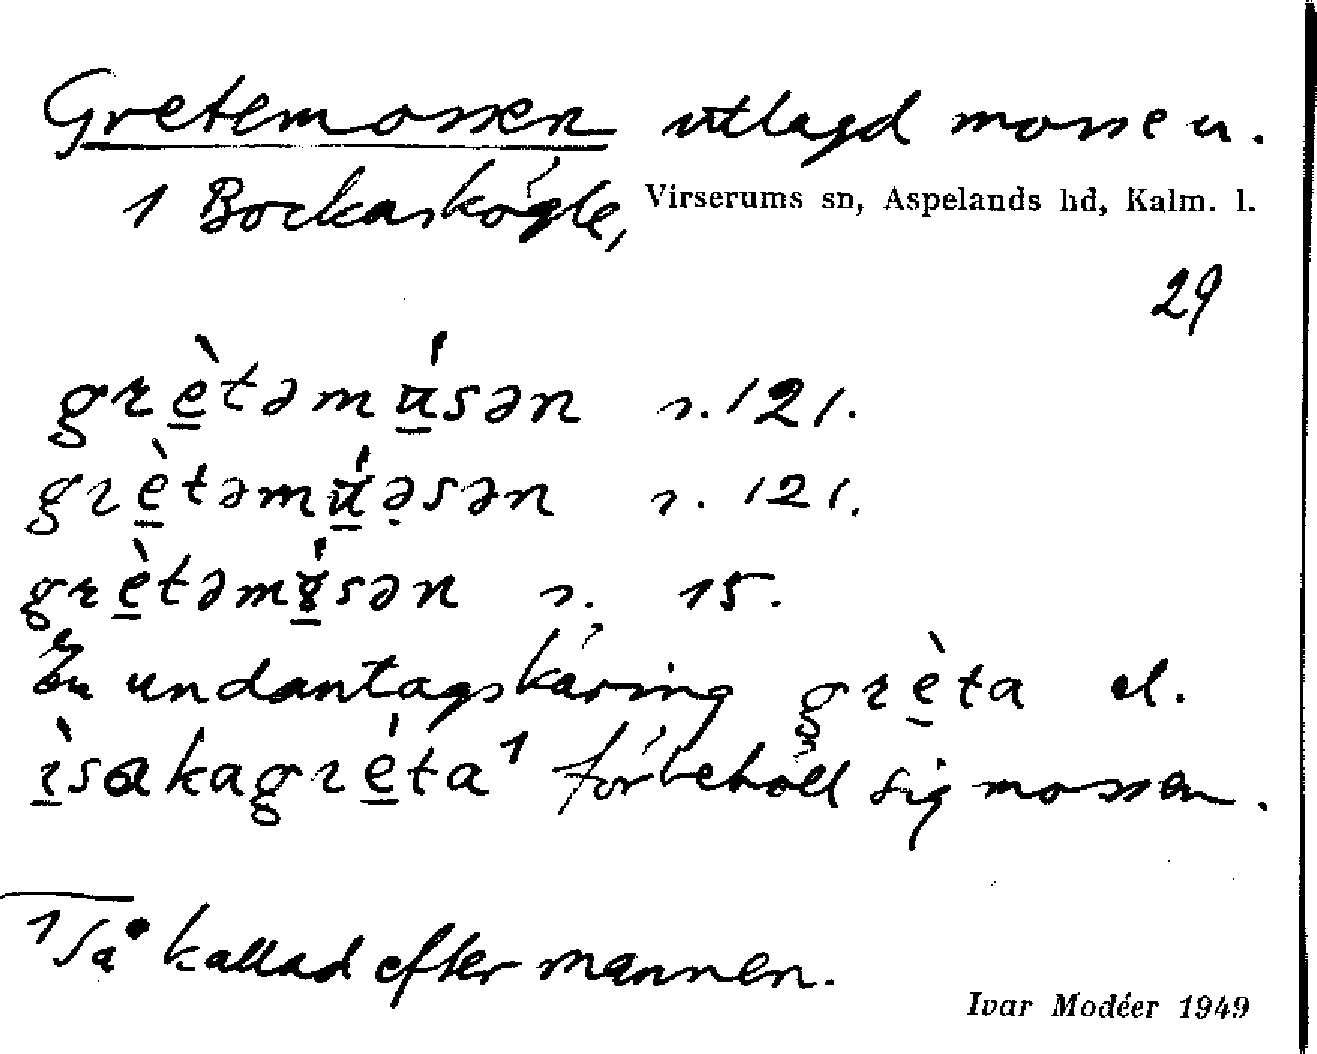 Gretemossen utlagd mosse u.
1 Bockaskögle, Virserums sn, Aspelands hd, Kalm. l.
29
grètəmúsən s. 121.
grètəmúəsən s. 121.
grètəmɣ́sən s. 15.
En undantagskäring grèta el.
ìsakagréta¹ förbehöll sig mossen.
¹ Så kallad efter mannen.
Ivar Modéer 1949